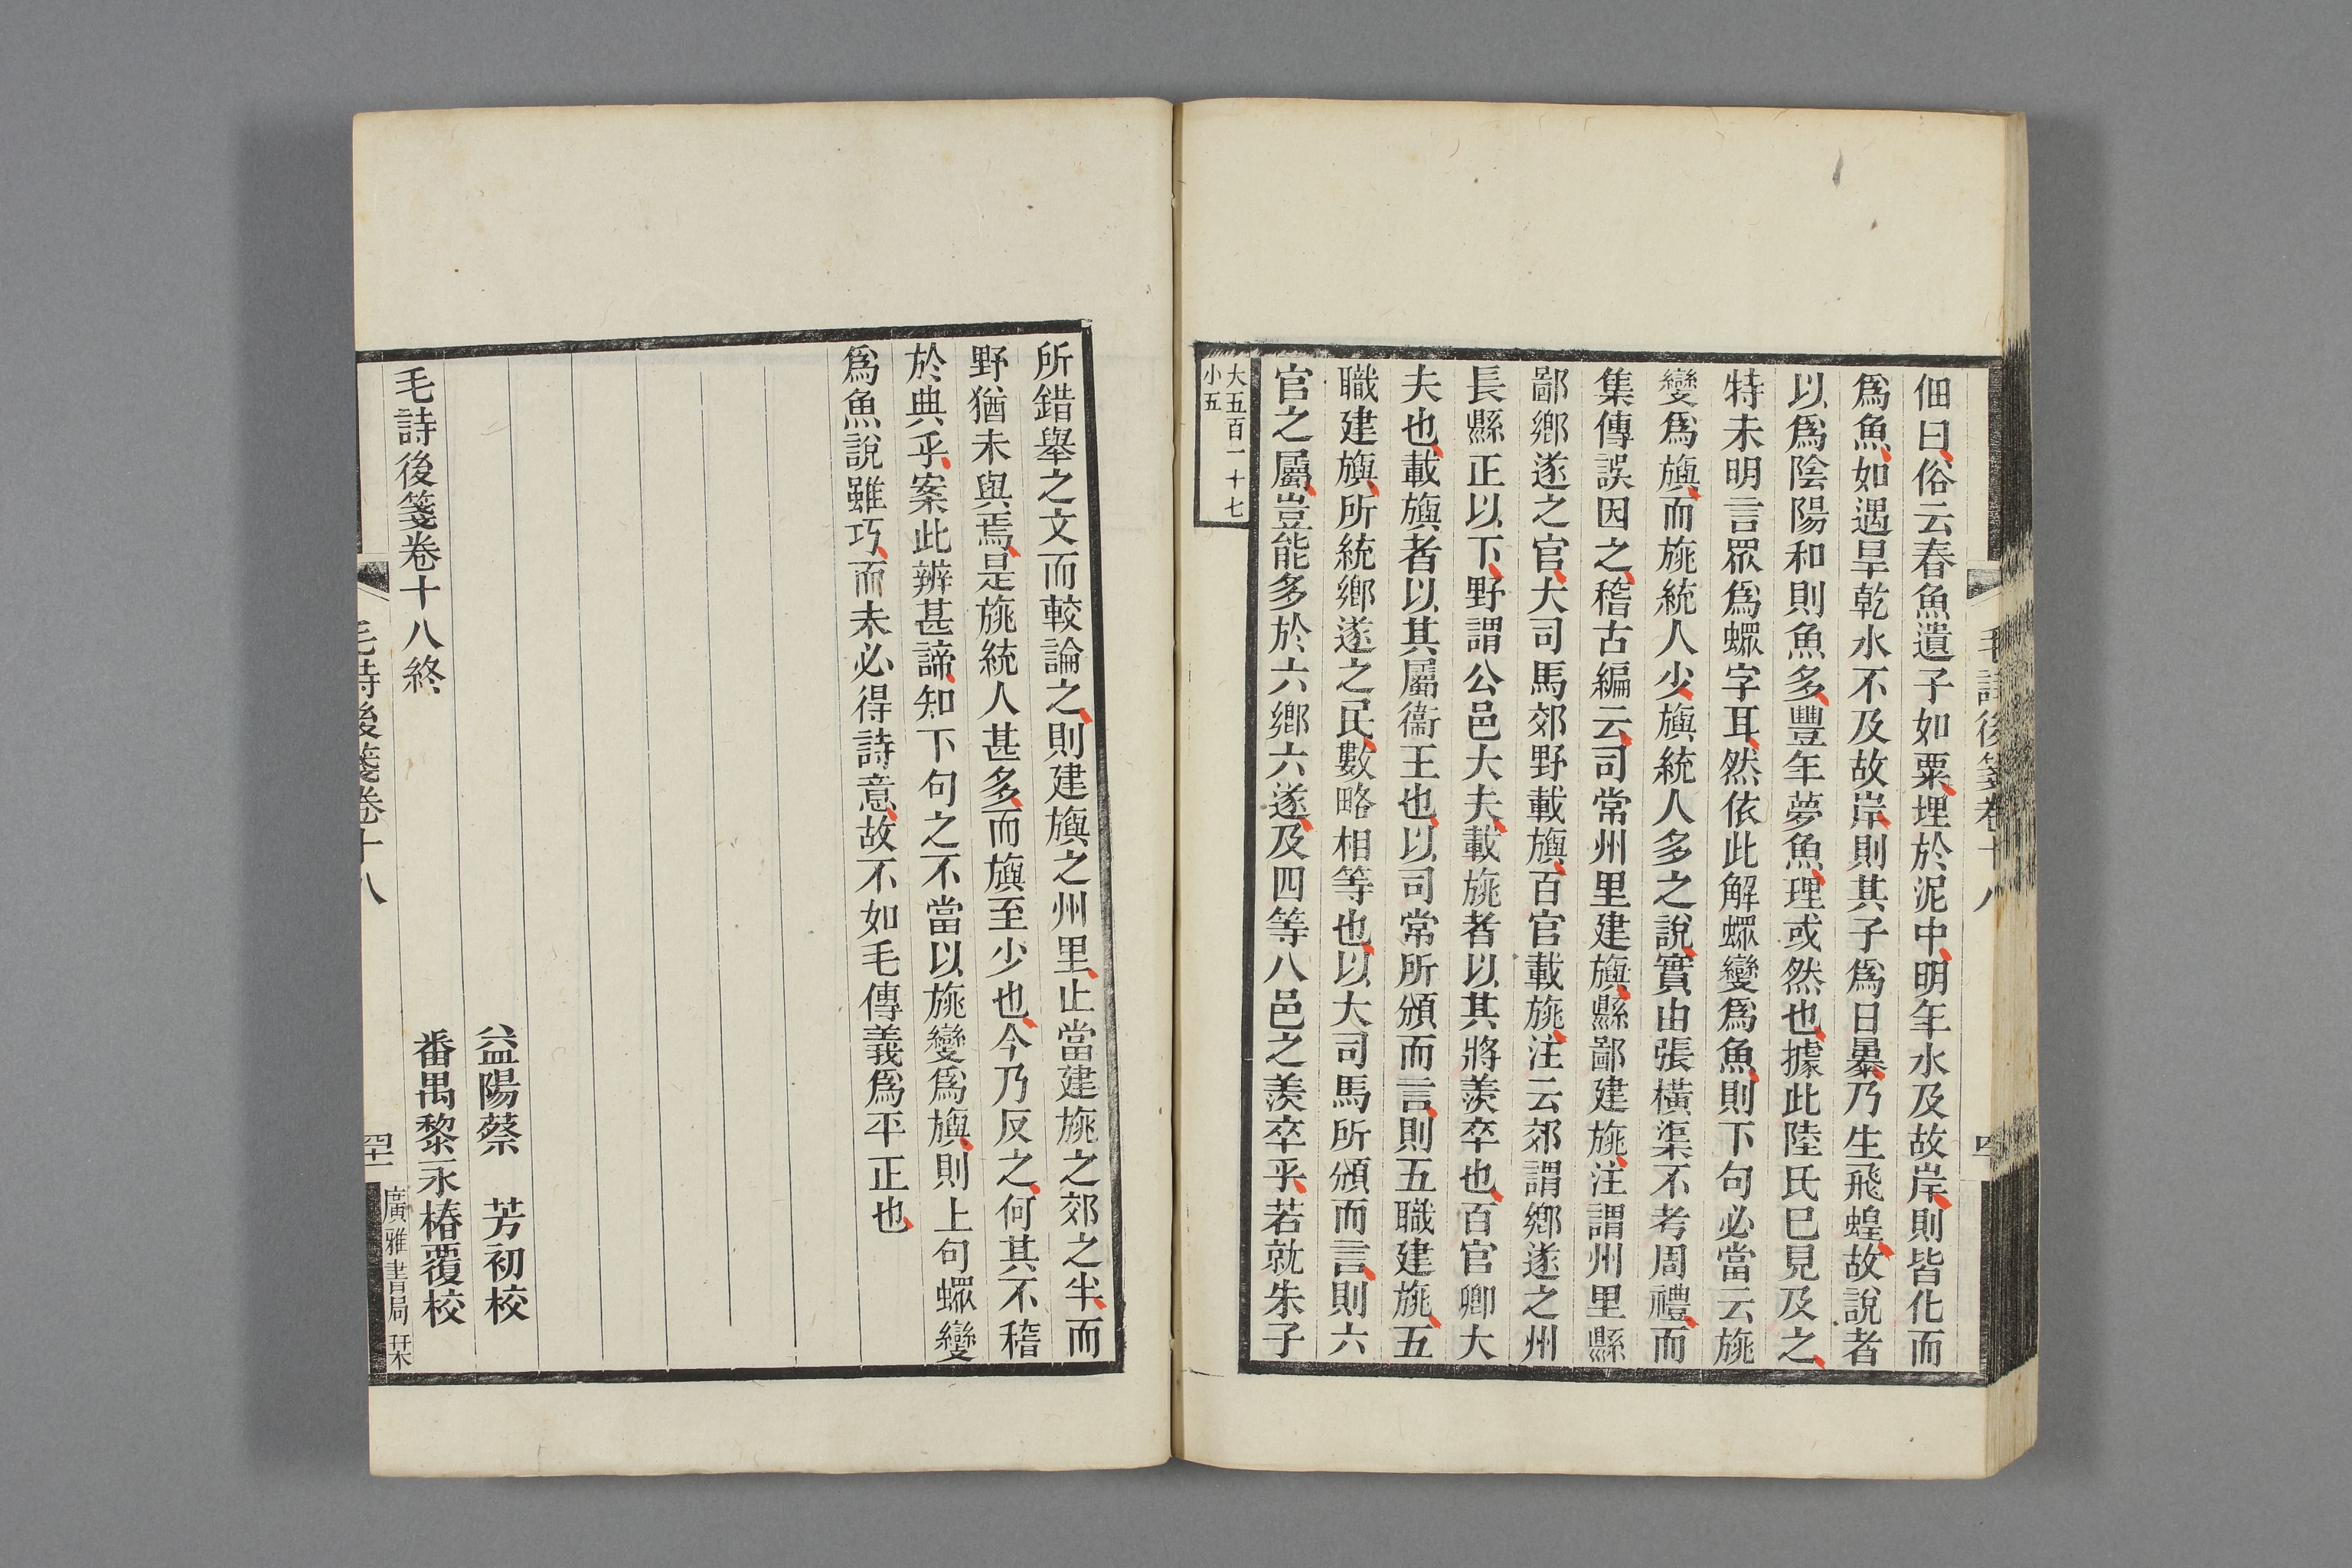 佃曰俗云春魚遺子如粟埋於泥中明年水及故岸則皆化而
爲魚如遇旱乾水不及故岸則其子爲日暴乃生飛蝗故說者
以爲陰陽和則魚多豐年夢魚理或然也據此陸氏已見及之
特未明言眾爲螺字耳然依此解螺變爲魚則下句必當云旐
變爲旟而旐統人少旟統人多之說實由張橫渠不考周禮而
集傳誤因之稽古編云司常州里建旟縣鄙建旐注謂州里縣
鄙鄉遂之官大司馬郊野載旟百官載旐注云郊謂鄉遂之州
長縣正以下野謂公邑大夫載旐者以其將羨卒也百官卿大
夫也載旟者以其屬衞王也以司常所頒而言則五職建旐五
職建旟所統鄉遂之民數略相等也以大司馬所頒而言則六
官之屬豈能多於六鄉六遂及四等八邑之羨卒乎若就朱子
大五百一十七
小五
所錯舉之文而較論之則建旟之州里止當建旐之郊之半而
野猶未與焉是旐統人甚多而旟至少也今乃反之何其不稽
於典乎案此辨甚諦知下句之不當以旐變爲旟則上句螺變
爲魚說雖巧而未必得詩意故不如毛傳義爲平正也
益陽蔡 芳初校
番禺黎永椿覆校
毛詩後箋卷十八終
毛詩後箋卷十八
廣雅書局栞